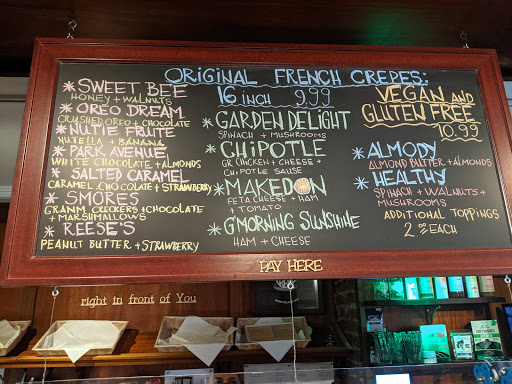 ORIGINAL FRENCH CREPES:
16 INCH 9.99
* SWEET BEE
HONEY + WALNUTS
* OREO DREAM
CRUSHED OREO + CHOCOLATE
* NUTIE FRUITE
NUTELLA + BANANA
* PARK AVENUE
WHITE CHOCOLATE + ALMONDS
* SALTED CARAMEL
CARAMEL, CHOCOLATE + STRAWBERRY
* SMORES
GRANM CRECKERS + CHOCOLATE
+ MARSHMALLOWS
* REESE'S
PEANUT BUTTER + STRAWBERRY
* GARDEN DELIGHT
SPINACH + MUSHROOMS
* CHIPOTLE
GR CHICKEN + CHEESE +
CHIPOTLE SAUSE
* MAKEDON
FETA CHEESE + HAM
+ TOMATO
* G'MORNING SUNSHINE
HAM + CHEESE
VEGAN AND
GLUTEN FREE
10.99
* ALMODY
ALMOND BUTTER + ALMONDS
* HEALTHY
SPINACH + WALNUTS +
MUSHROOMS
ADDITIONAL TOPPINGS
2 EACH
PAY HERE
right in front of You